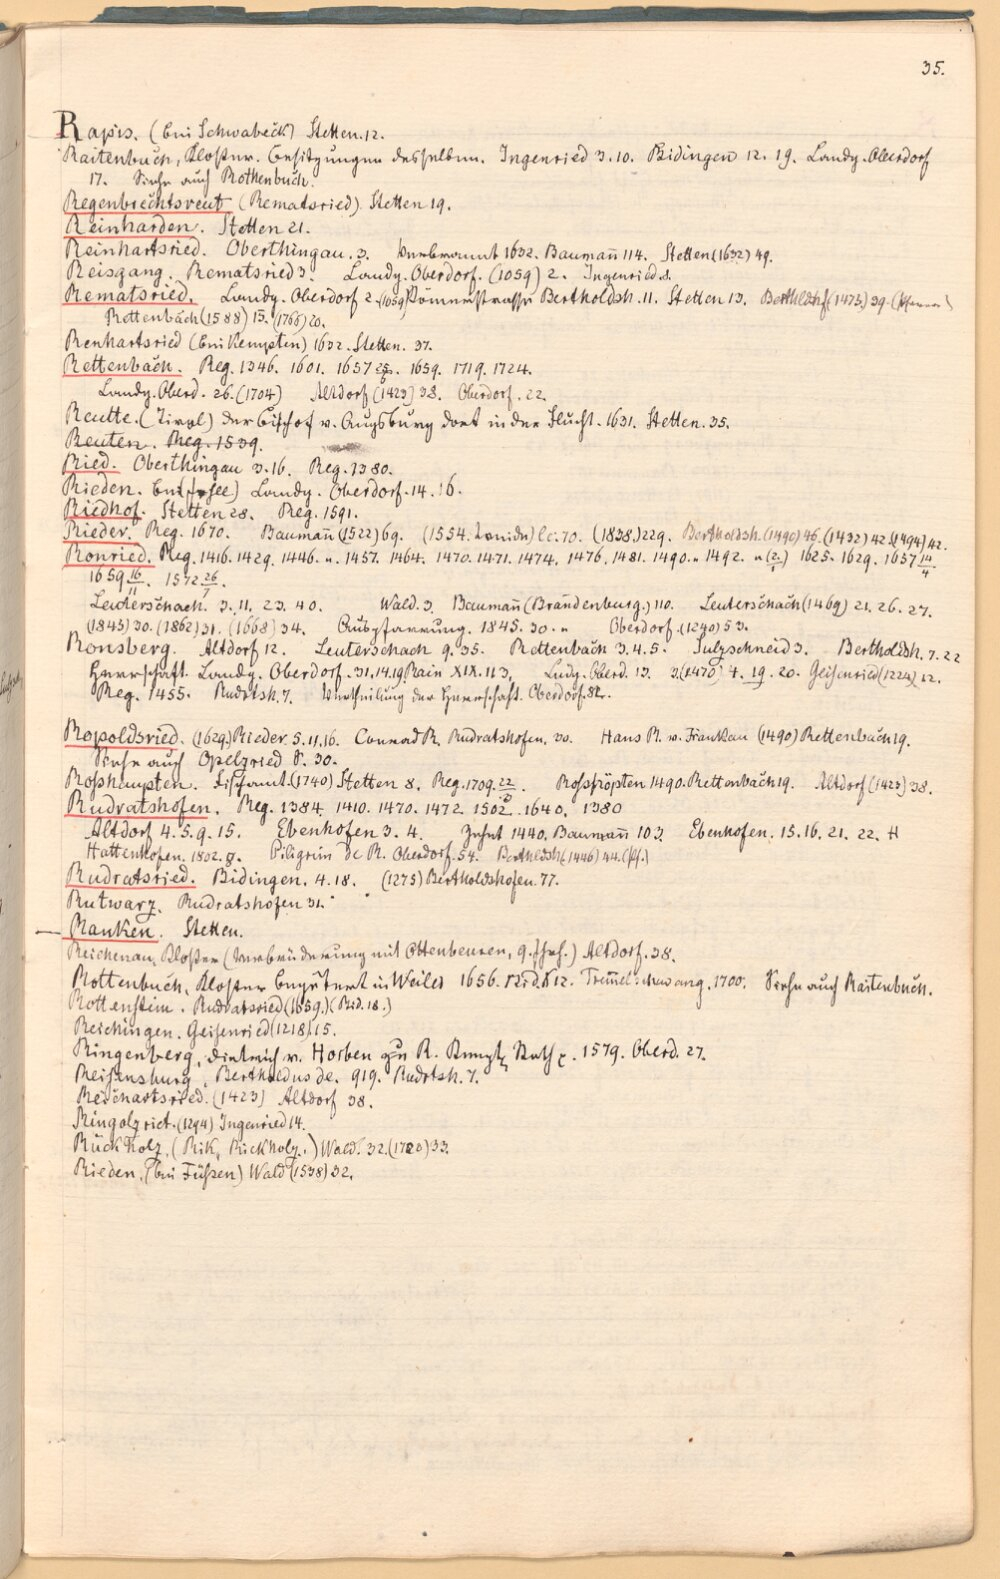 35.
Rapis. (bei Schwabeck) Stetten. 12.
Raitenbuch, Kloster. Besitzungen desselben. Ingenried 3. 10. Bidingen 12. 19. Landg. Oberdorf
17. Siehe auch Rothenbuch.
Regenbrechtsreut (Rematsried). Stetten 19.
Reinharden. Stetten 21.
Reinhartsried. Oberthingau. 3. verbrannt 1632. Baumañ 114. Stetten (1632) 49.
Reisgang. Rematsried 3. Landg. Oberdorf. (1059) 2. Ingenried. 8.
Rematsried. Landg. Oberdorf 2. (1059) Römerstrasse Bertholdsh. 11. Stetten 13. Bertholdshf (1473) 39. (Pfarrer)
Rettenbach (1588) 15. (1766) 20.
Renhartsried (bei Kempten) 1632. Stetten. 37.
Rettenbach. Reg. 1346. 1601. 1657 1659. 1719. 1724.
Landg. Oberd. 26. (1704) Altdorf (1423) 38. Oberdorf. 22.
Reutte. (Tirol) der Bischof v. Augsburg dort in der Flucht. 1631. Stetten. 35.
Reuten. Reg. 1539.
Ried. Oberthingau 3. 16. Reg. 1380.
Rieden. bei Landg. Oberdorf. 14. 16.
Riedhof. Stetten 28. Reg. 1591.
Rieder. Reg. 1670. Baumañ (1522) 69. (1554. lc. 70. (1838.) 229. Bertholdsh. (1490) 46. (1432) 42. (1494) 42.
Ronried. Reg. 1416. 1429. 1446. „. 1457. 1464. 1470. 1471. 1474. 1476. 1481. 1490. „. 1492. 1625. 1629. 1657 14/4
1659 16/11. 1572 26/7.
Leuterschach. 3. 11. 23. 40. Wald. 3. Baumañ (Brandenburg.) 110. Leuterschach (1469) 21. 26. 27.
(1845) 30. (1862) 31. (1668) 34. Auspfarrung. 1845. 30. „ Oberdorf. (1240) 53.
Ronsberg. Altdorf 12. Leuterschach 9. 35. Rettenbach 3. 4. 5. Sulzschneid 3. Bertholdsh. 7. 22
Herrschaft. Landg. Oberdorf. 31. 14. 19. Rain XIX. 113. Ludg. Oberd. 13. 3. (1470) 4. 19. 20. Geisenried (1224) 12.
Reg. 1455. Rudrtsh. 7. Vertheilung der Herrschaft. Oberdorf. 82.
Ropoldsried. (1629.) Rieder. 5. 11. 16. Conrad R. Rudratshofen. 30. Hans R. v. Frankau (1490) Rettenbach 19.
Siehe auch Opelzried S. 30.
Roshaupten. (1740) Stetten 8. Reg. 1709. Roshöpten 1490. Rettenbach 19. Altdorf (1423) 38.
Rudratshofen. Reg. 1384. 1410. 1470. 1472. 1502. 1640. 1380
Altdorf 4. 5. 9. 15. Ebenhofen 3. 4. Zehnt 1440. Baumañ 103. Ebenhofen. 15. 16. 21. 22.
Hattenhofen. 1802. 8. Piligrim de R. Oberdorf. 54. Bertholdsh (1446) 44. (Pf.)
Rudratsried. Bidingen. 4. 18. (1275) Bertholdshofen. 77.
Rutwarz. Rudratshofen 31.
Ranken. Stetten.
Reichenau, Kloster (Verbrüderung mit Ottenbeuren, 9. Jhrh.) Altdorf. 38.
Rottenbuch, Kloster begütert in Weiler 1656. 12. Tremelschwang. 1700. Siehe auch Raitenbuch.
Rottenstein. Rudratsried (1659.) (Rid. 18.)
Reichingen. Geisenried (1218) 15.
Ringenberg, Dietrich v. Horben zu R. Kempt. Rath 1579. Oberd. 27.
Reisensburg, Bertholdus de. 919. Rudrtsh. 7.
Reichartsried. (1423) Altdorf 38.
Ringolzriet. (1294) Ingenried 14.
Rückholz. (Rik, Rickholz.) Wald. 32. (1720) 33.
Rieden. (bei Füssen) Wald (1538) 32.